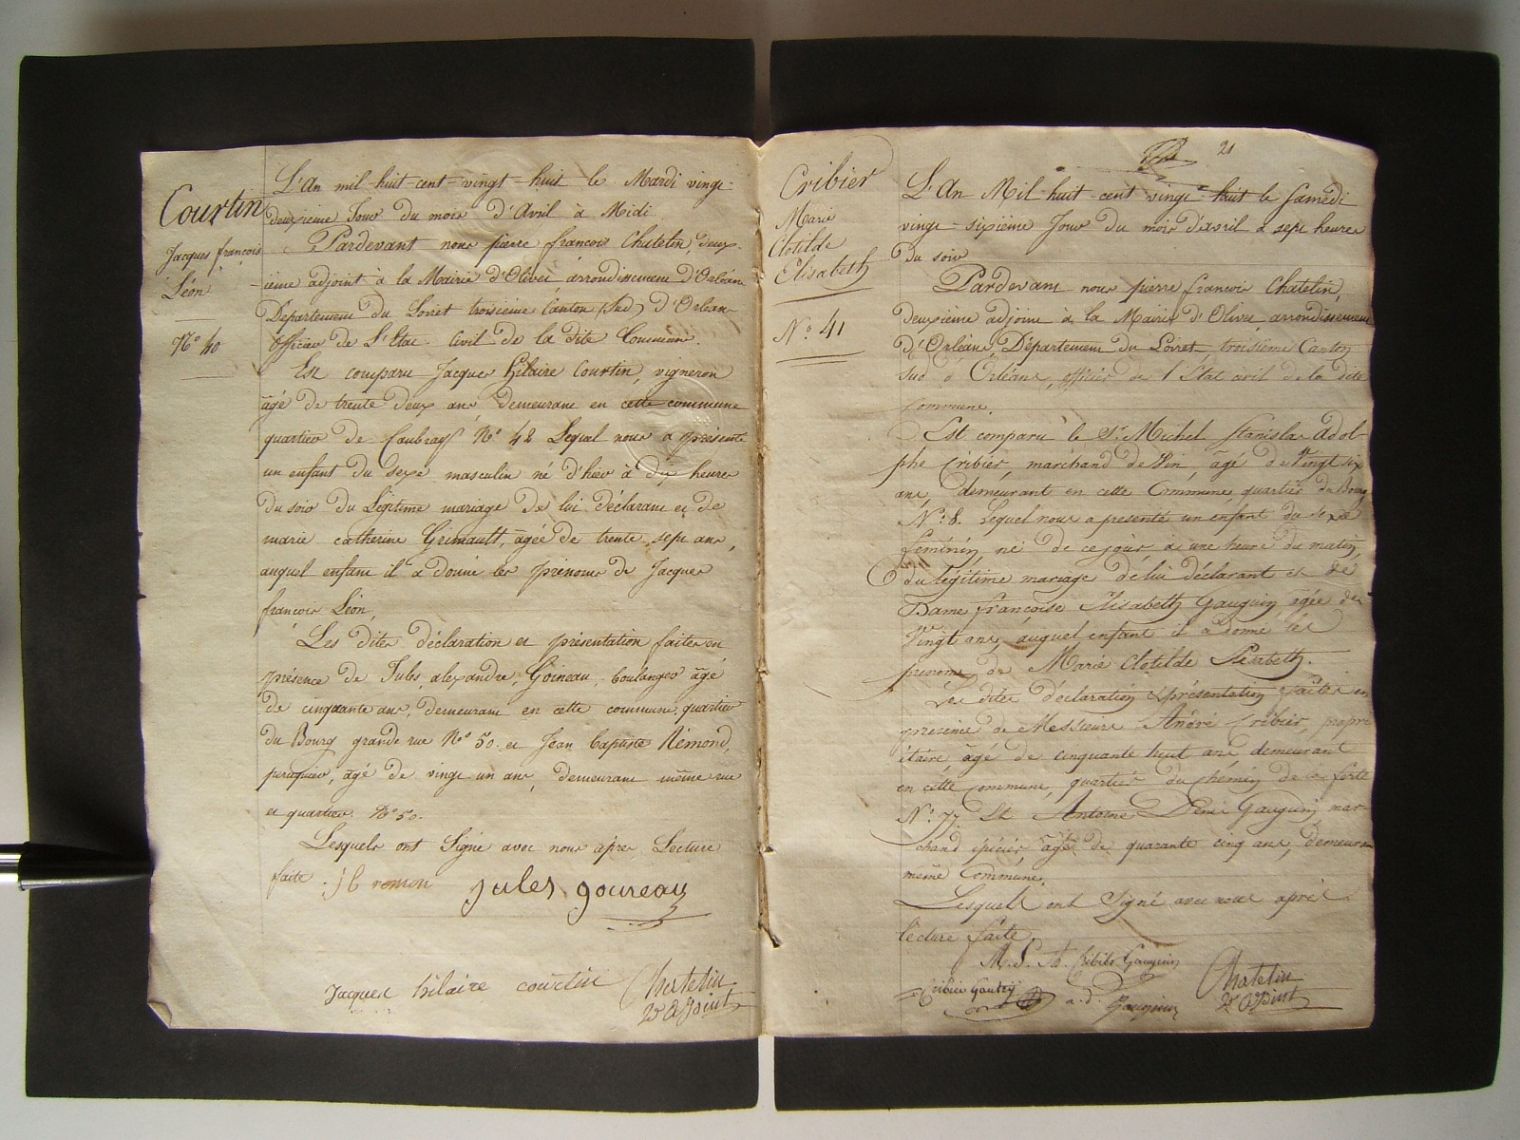 Courtin
Jacques françois
Léon
N.° 40
L'An mil-huit-cent-vingt-huit le Mardi vingt-
deuxième Jour du mois d'Avril à Midi
Pardevant nous pierre françois Chatelin, deux-
ième adjoint à la Mairie d'Olivet, arrondissement d'Orléans
Département du Loiret troisième Canton (Sud) d'Orléans
officier de L'Etat Civil de la dite Commune.
Est comparu Jacques hilaire Courtin, vigneron
âgé de trente deux ans, demeurant en cette commune
quartier de Caubray N.° 42 Lequel nous a présenté
un enfant du sexe masculin né d'hier à dix heures
du soir du Légitime mariage de lui déclarant et de
marie catherine Grimault, âgée de trente sept ans,
auquel enfant il a donné les prénoms de Jacques
françois Léon,
Les dites déclaration et présentation faites en
présence de Jules, alexandre, Goineau, boulanger âgé
de cinquante ans, demeurant en cette commune, quartier
du Bourg grande rue N.° 50. et Jean baptiste Rémond,
perruquier, âgé de vingt un ans, demeurant même rue
et quartier N.° 50.
Lesquels ont Signé avec nous après Lecture
faite. j b remon jules goureau
Jacques hilaire courtin Chatelin
2e adjoint
Cribier
Marie
Clotilde
Elisabeth
N.° 41
21
L'An Mil-huit-cent vingt-huit le Samedi
vingt-sixième Jour du mois d'avril à sept heures
Du soir
Pardevant nous pierre françois Chatelin,
deuxième adjoint à la Mairie d'Olivet, arrondissement
D'Orléans, Département du Loiret, troisième Canton
sud d'Orléans, officier de l'Etat civil de la dite
commune.
Est comparu le Sr. Michel Stanislas Adol-
phe Cribier, marchand de Vin, âgé de Vingt six
ans, demeurant en cette Commune, quartier du Bourg
N.° 8. Lequel nous a présenté un enfant du sexe
féminin, né de ce jour à une heure du matin,
du légitime mariage de lui déclarant et de
Dame françoise Elisabeth Gauguin âgée de
Vingt ans, auquel enfant il a donné les
prenoms de Marie Clotilde Elisabeth.
Les dites déclaration & présentation faites en
présence de Messieurs André Cribier, propri-
étaire, âgé de cinquante huit ans demeurant
en cette commune, quartier du chemin de la ferté
N.° 77 Et Antoine Denis Gauguin mar-
chand épicier âgé de quarante cinq ans, demeurant
même Commune.
Lesquels ont Signé avec nous après
lecture faite.
M. S. A. Cribier Gauguin
Cribier Gautry a. d. Gauguin Chatelin
2e adjoint